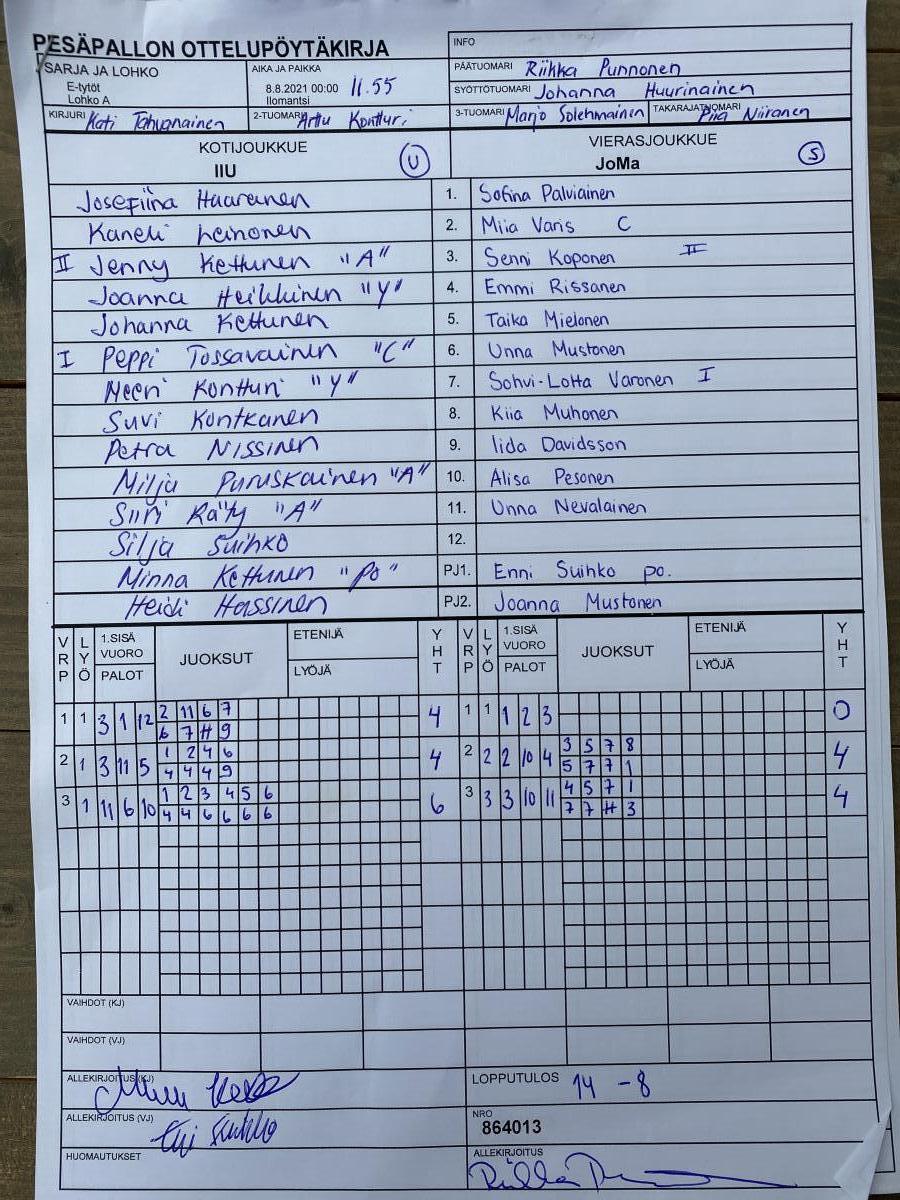 PESÄPALLON OTTELUPÖYTÄKIRJA
INFO
SARJA JA LOHKO
E-tytöt
Lohko A
AIKA JA PAIKKA
8.8.2021 00:00 11.55
Ilomantsi
PÄÄTUOMARI Riikka Punnonen
SYÖTTÖTUOMARI Johanna Huurinainen
KIRJURI Kati Tahvanainen
2-TUOMARI Arttu Kontturi
3-TUOMARI Marjo Solehmainin
TAKARAJATUOMARI Piia Niiranen
KOTIJOUKKUE
IIU
U
VIERASJOUKKUE
JoMa
S
Josefiina Haaranen 1. Sofina Palviainen
Kaneli Leinonen 2. Miia Varis C
II Jenny Kettunen "A" 3. Senni Koponen II
Joanna Heikkinen "Y" 4. Emmi Rissanen
Johanna Kettunen 5. Taika Mielonen
I Peppi Tossavainen "C" 6. Unna Mustonen
Neeri Kontturi "Y" 7. Sohvi-Lotta Varonen I
Suvi Kontkanen 8. Kiia Muhonen
Petra Nissinen 9. Iida Davidsson
Milja Puruskainen "A" 10. Alisa Pesonen
Siiri Räty "A" 11. Unna Nevalainen
Silja Suihko 12.
Minna Kettunen "po" PJ1. Enni Suihko po.
Heidi Hassinen PJ2. Joanna Mustonen
VRP LYÖ 1.SISÄ VUORO PALOT JUOKSUT ETENIJÄ LYÖJÄ YHT VRP LYÖ 1.SISÄ VUORO PALOT JUOKSUT ETENIJÄ LYÖJÄ YHT
1 1 3 1 12 2 11 6 7 4 1 1 1 2 3 0
6 7 H 9
2 1 3 11 5 1 2 4 6 4 2 2 2 10 4 3 5 7 8 4
4 4 4 9 5 7 7 1
3 1 11 6 10 1 2 3 4 5 6 6 3 3 3 10 11 4 5 7 1 4
4 4 6 6 6 6 7 7 H 3
VAIHDOT (KJ)
VAIHDOT (VJ)
ALLEKIRJOITUS (KJ)
LOPPUTULOS 14 - 8
ALLEKIRJOITUS (VJ)
NRO
864013
HUOMAUTUKSET
ALLEKIRJOITUS